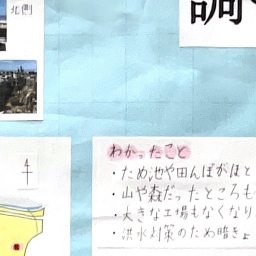 北側
調
わかったこと
・ため池や田んぼがほと
・山や森だったところも
・大きな工場もなくなり
・洪水対策のため暗きょ